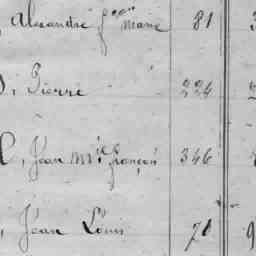 , Alexandre fçois marie 81 3
, Pierre 224
, Jean M.el françois 346
, Jean Louis 71 9